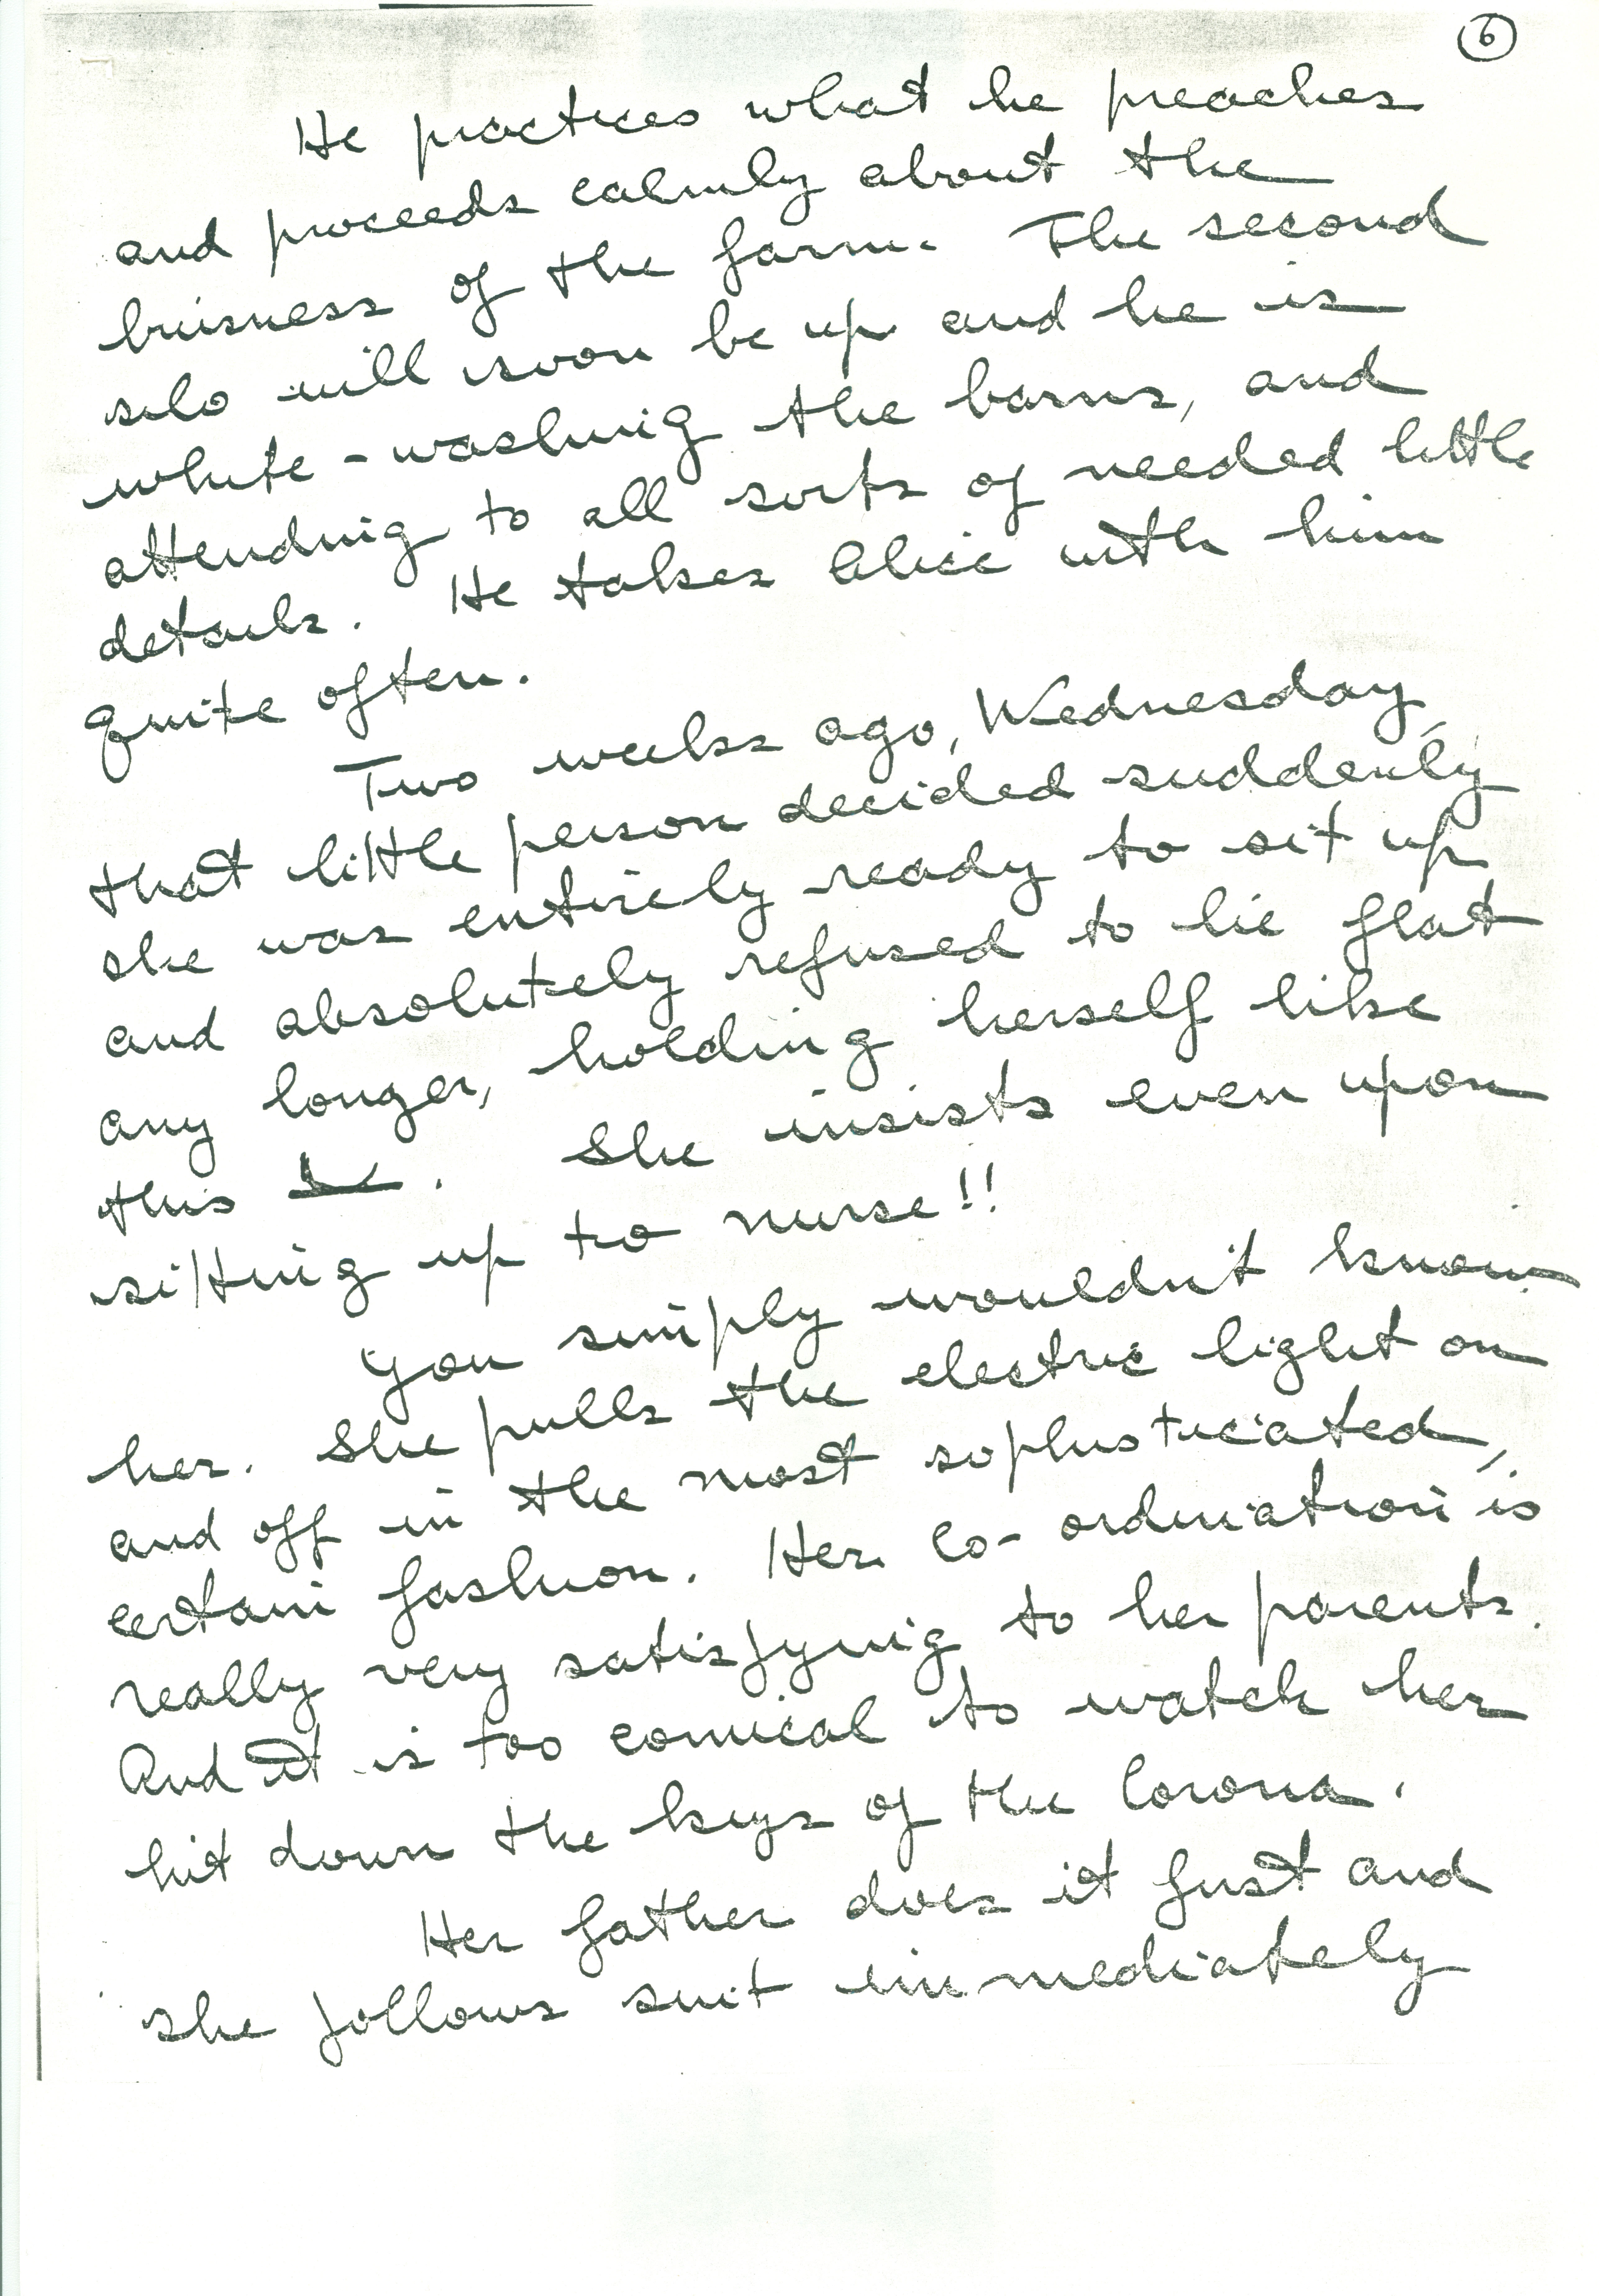 6
He practices what he preaches
and proceeds calmly about the
buisness of the farm. The second
silo will soon be up and he is
white-washing the barns, and
attending to all sorts of needed little
details. He takes Alice with him
quite often.
Two weeks ago, Wednesday,
that little person decided suddenly
she was entirely ready to sit up
and absolutely refused to lie flat
any longer, holding herself like
this . She insists even upon
sitting up to nurse!!
You simply wouldn't know
her. She pulls the electric light on
and off in the most sophisticated,
certain fashion. Her co-ordination is
really very satisfying to her parents.
And it is too comical to watch her
hit down the keys of the Corona.
Her father does it first and
she follows suit immediately